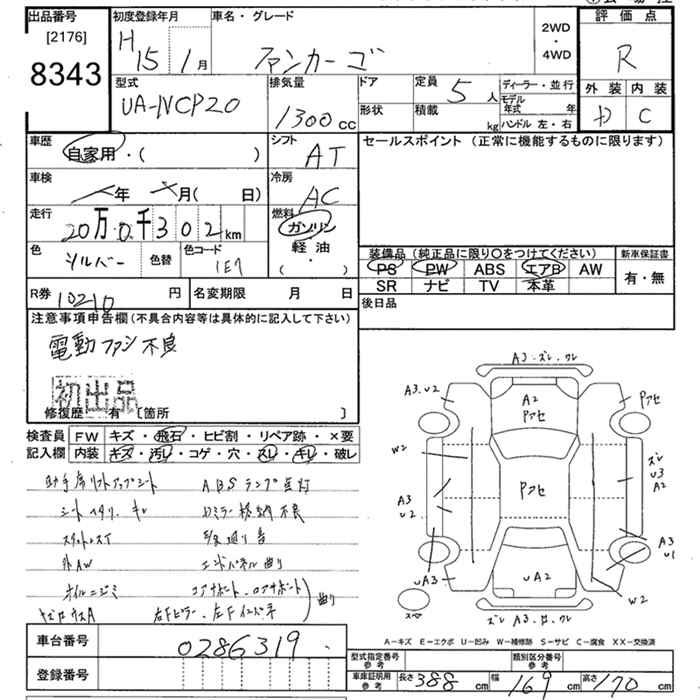 出品番号 初度登録年月 車名・グレード 2WD・4WD 評価点
[2176]
8343
H15 1月 ファンカーゴ R
型式 排気量 ドア 定員 5人 ディーラー・並行 外装 内装
UA-NCP20 1300cc 形状 積載 kg モデル年式 年 ハンドル 左・右 D C
車歴 自家用・( ) シフト AT セールスポイント (正常に機能するものに限ります)
車検 年 月( 日) 冷房 AC
走行 20万0千302km 燃料 ガソリン 軽油 ・( )
色 シルバー 色替 色コード 1E7
装備品 (純正品に限り○をつけてください) 新車保証書
PS PW ABS エアB AW 有・無
SR ナビ TV 本革
R券 10210円 名変期限 月 日 後日品
注意事項申告欄(不具合内容等は具体的に記入して下さい)
電動ファン不良
初出品
修復歴 有 [箇所 ]
検査員 FW キズ・飛石・ヒビ割・リペア跡・×要
記入欄 内装 キズ・汚レ・コゲ・穴・スレ・キレ・破レ
助手席リフトアップシート ABSランプ点灯
シートヘタリ・キレ Dミラー格納不良
外AW エンドパネル曲り
オイルニジミ コアサポート、ロアサポート 曲り
A3・ズレ・ワレ
A3.U2
A2
Pアセ
Pアセ
W2
Pアセ
ズレ
U3
A2
A3
U2
A3
U1
UA3
UA2
W2
スペ
ズレ A3・ワレ
A-キズ E-エクボ U-凹み W-補修跡 S-サビ C-腐食 XX-交換済
車台番号 0286319
登録番号
型式指定番号 参考 類別区分番号 参考
車庫証明用 参考 長さ 388cm 幅 169cm 高さ 170cm